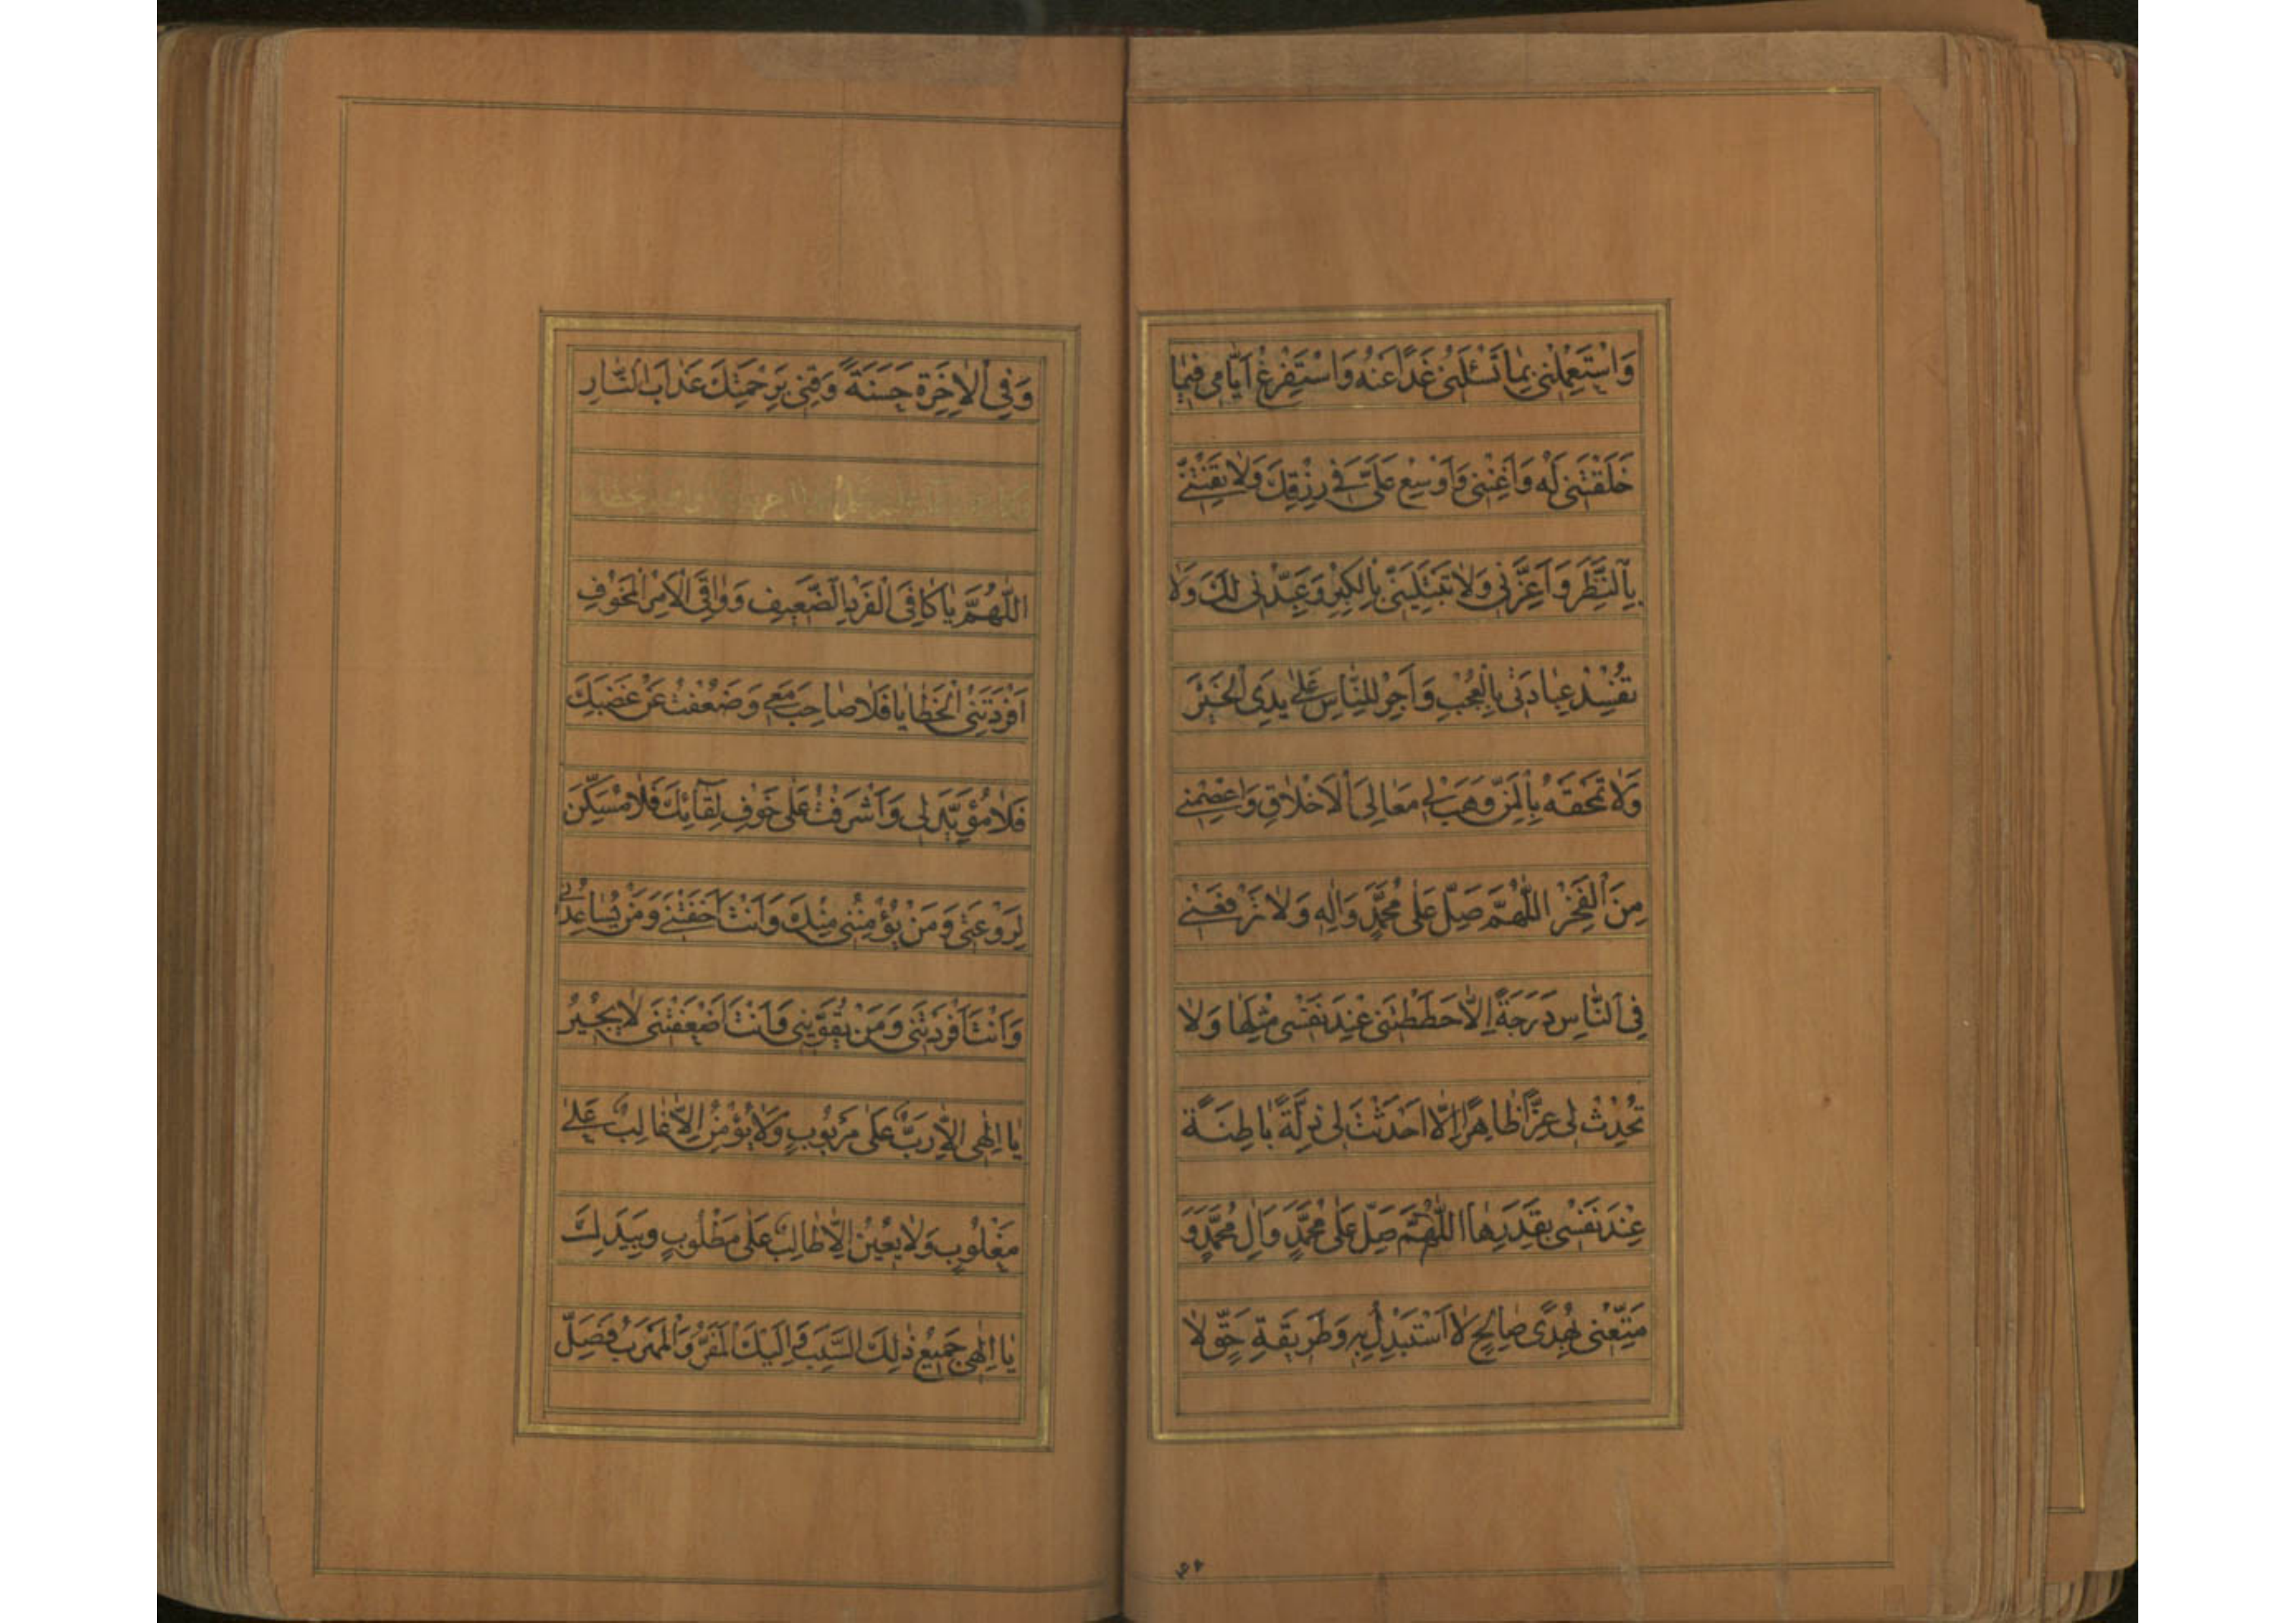 وَاسْتَعْمِلْنِي بِمَا تَسْئَلُنِي غَدًا عَنْهُ وَاسْتَفْرِغْ اَيَّامِي فِيمَا
خَلَقْتَنِي لَهُ وَاَغْنِنِي وَاَوْسِعْ عَلَيَّ فِي رِزْقِكَ وَلَا تَفْتِنِّي
بِالنَّظَرِ وَاَعِزَّنِي وَلَا تَبْتَلِيَنِّي بِالْكِبْرِ وَعَبِّدْنِي لَكَ وَلَا
تُفْسِدْ عِبَادَتِي بِالْعُجْبِ وَاَجْرِ لِلنَّاسِ عَلَى يَدِيَ الْخَيْرَ
وَلَا تَمْحَقْهُ بِالْمَنِّ وَهَبْ لِي مَعَالِيَ الْاَخْلَاقِ وَاعْصِمْنِي
مِنَ الْفَخْرِ اَللّٰهُمَّ صَلِّ عَلَى مُحَمَّدٍ وَاٰلِهِ وَلَا تَرْفَعْنِي
فِي النَّاسِ دَرَجَةً اِلَّا حَطَطْتَنِي عِنْدَ نَفْسِي مِثْلَهَا وَلَا
تُحْدِثْ لِي عِزًّا ظَاهِرًا اِلَّا اَحْدَثْتَ لِي ذِلَّةً بَاطِنَةً
عِنْدَ نَفْسِي بِقَدَرِهَا اَللّٰهُمَّ صَلِّ عَلَى مُحَمَّدٍ وَاٰلِ مُحَمَّدٍ وَ
مَتِّعْنِي بِهُدًى صَالِحٍ لَا اَسْتَبْدِلُ بِهِ وَطَرِيقَةِ حَقٍّ لَا
وَفِي الْاٰخِرَةِ حَسَنَةً وَقِنِي بِرَحْمَتِكَ عَذَابَ النَّارِ
اَللّٰهُمَّ يَا كَافِيَ الْفَرْدِ الضَّعِيفِ وَوَاقِيَ الْاَمْرِ الْمَخُوفِ
اَفْرَدَتْنِي الْخَطَايَا فَلَا صَاحِبَ مَعِي وَضَعُفْتُ عَنْ غَضَبِكَ
فَلَا مُؤَيِّدَ لِي وَاَشْرَفْتُ عَلَى خَوْفِ لِقَائِكَ فَلَا مُسَكِّنَ
لِرَوْعَتِي وَمَنْ يُؤْمِنُنِي مِنْكَ وَاَنْتَ اَخَفْتَنِي وَمَنْ يُسَاعِدُنِي
وَاَنْتَ اَفْرَدْتَنِي وَمَنْ يُقَوِّينِي وَاَنْتَ اَضْعَفْتَنِي لَا يُجِيرُ
يَا اِلٰهِي اِلَّا رَبٌّ عَلَى مَرْبُوبٍ وَلَا يُؤْمِنُ اِلَّا غَالِبٌ عَلَى
مَغْلُوبٍ وَلَا يُعِينُ اِلَّا طَالِبٌ عَلَى مَطْلُوبٍ وَبِيَدِكَ
يَا اِلٰهِي جَمِيعُ ذٰلِكَ السَّبَبِ وَاِلَيْكَ الْمَفَرُّ وَالْمَهْرَبُ فَصَلِّ